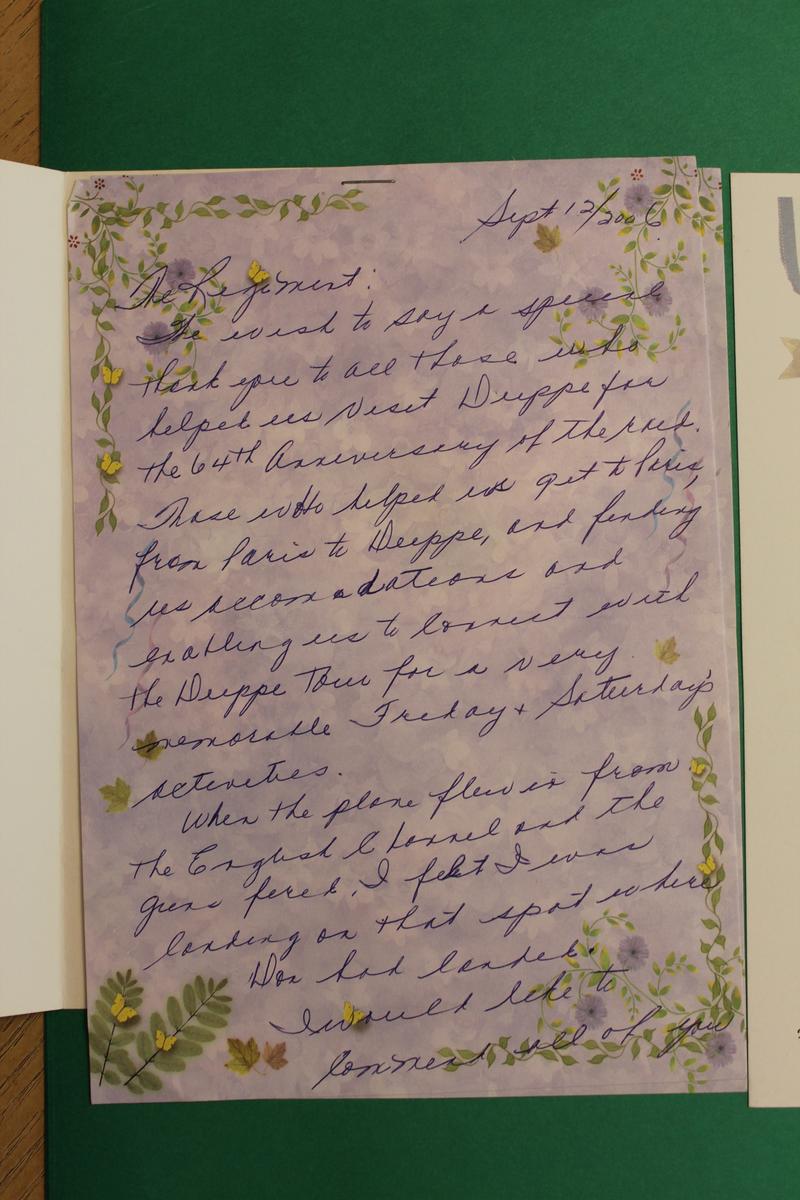 Sept 12/2006.
The Regiment:
We wish to say a special
thank you to all those who
helped us visit Dieppe for
the 64th Anniversary of the raid.
Those who helped us get to Paris,
from Paris to Dieppe, and finding
us accomadations and
enabling us to connect with
the Dieppe Tour for a very
memorable Friday + Saturday's
activities.
When the plane flew in from
the English Channel and the
guns fired, I felt I was
landing on that spot where
Don had landed.
I would like to
commend all of you